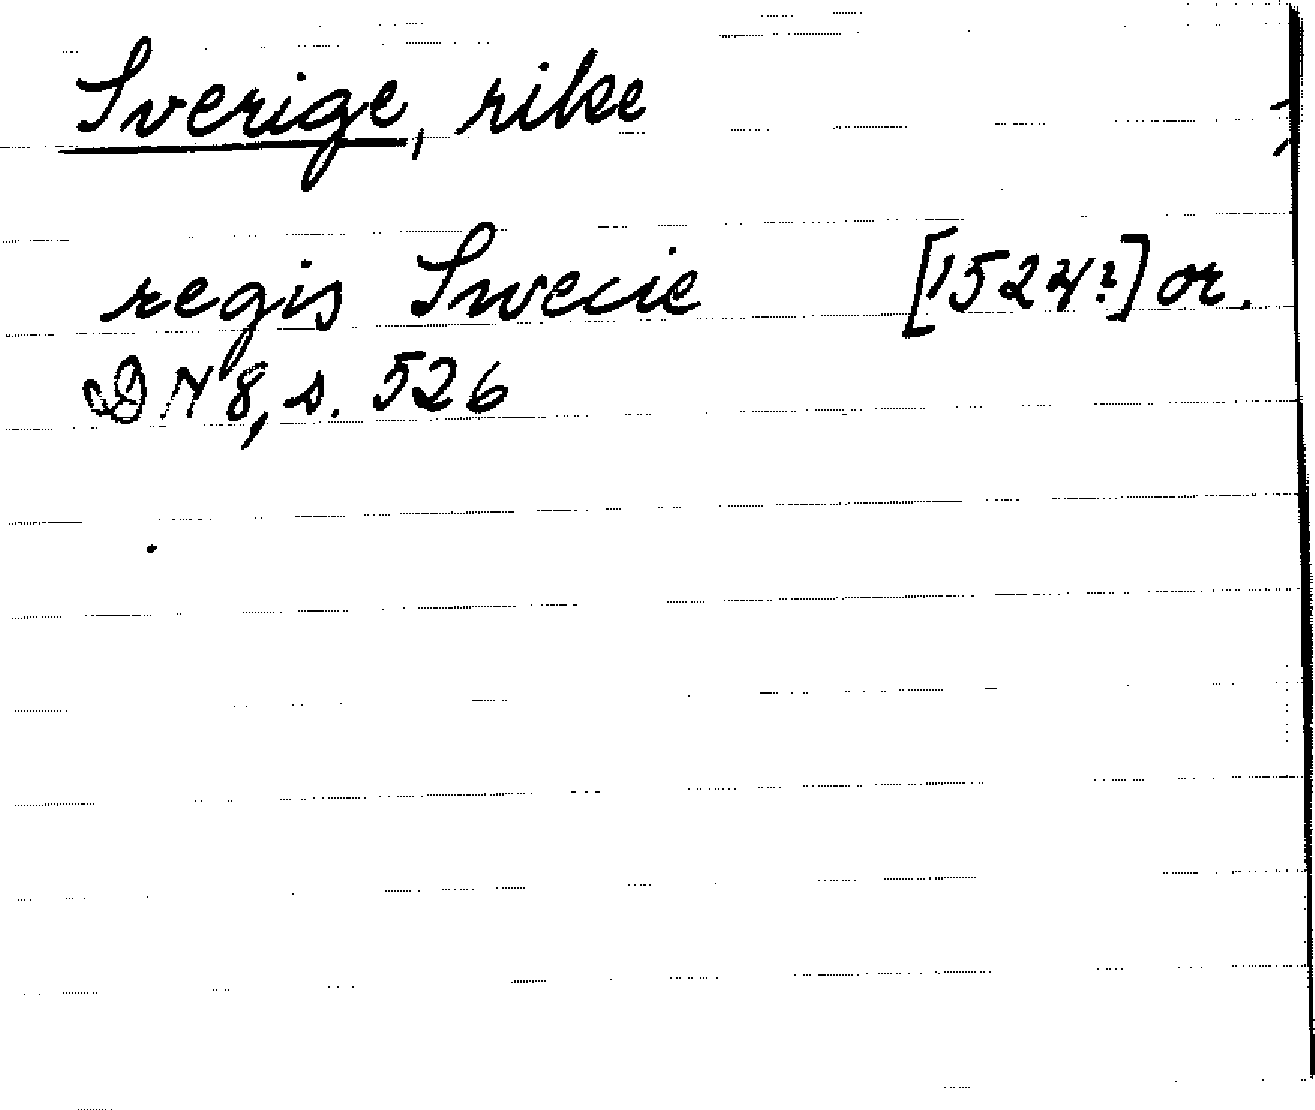 Sverige, rike
regis Swecie [1524?] or.
DN 8, s. 526